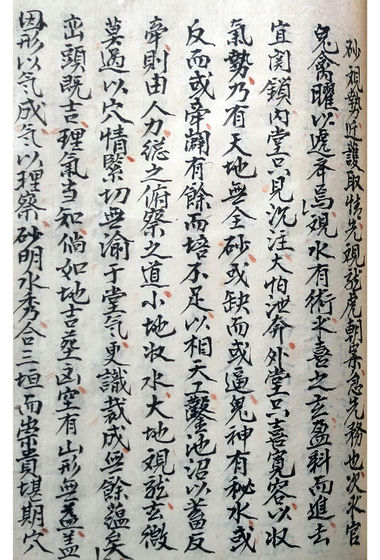 砂視勢迎護取情先視龍虎朝案急先務也次水官
鬼禽曜以遞吞焉視水有術水喜之玄盈科而進去
宜関鎖內堂只見沉注大怕泄奔外堂只喜寬容以收
氣勢乃有天地無全砂或缺而或逼鬼神有秘水或
反而或牽闢有餘而培不足以相天工鑿池沼以蓄反
牽則由人力總之俯察之道小地收水大地視龍玄微
莫過以穴情緊切無渝于堂氣更識裁成無餘蘊矣
巒頭既吉理氣当知倘如地吉塟凶空有山形無益盖
因形以氣成氣以理察砂明水秀合三垣而崇貴堪期穴